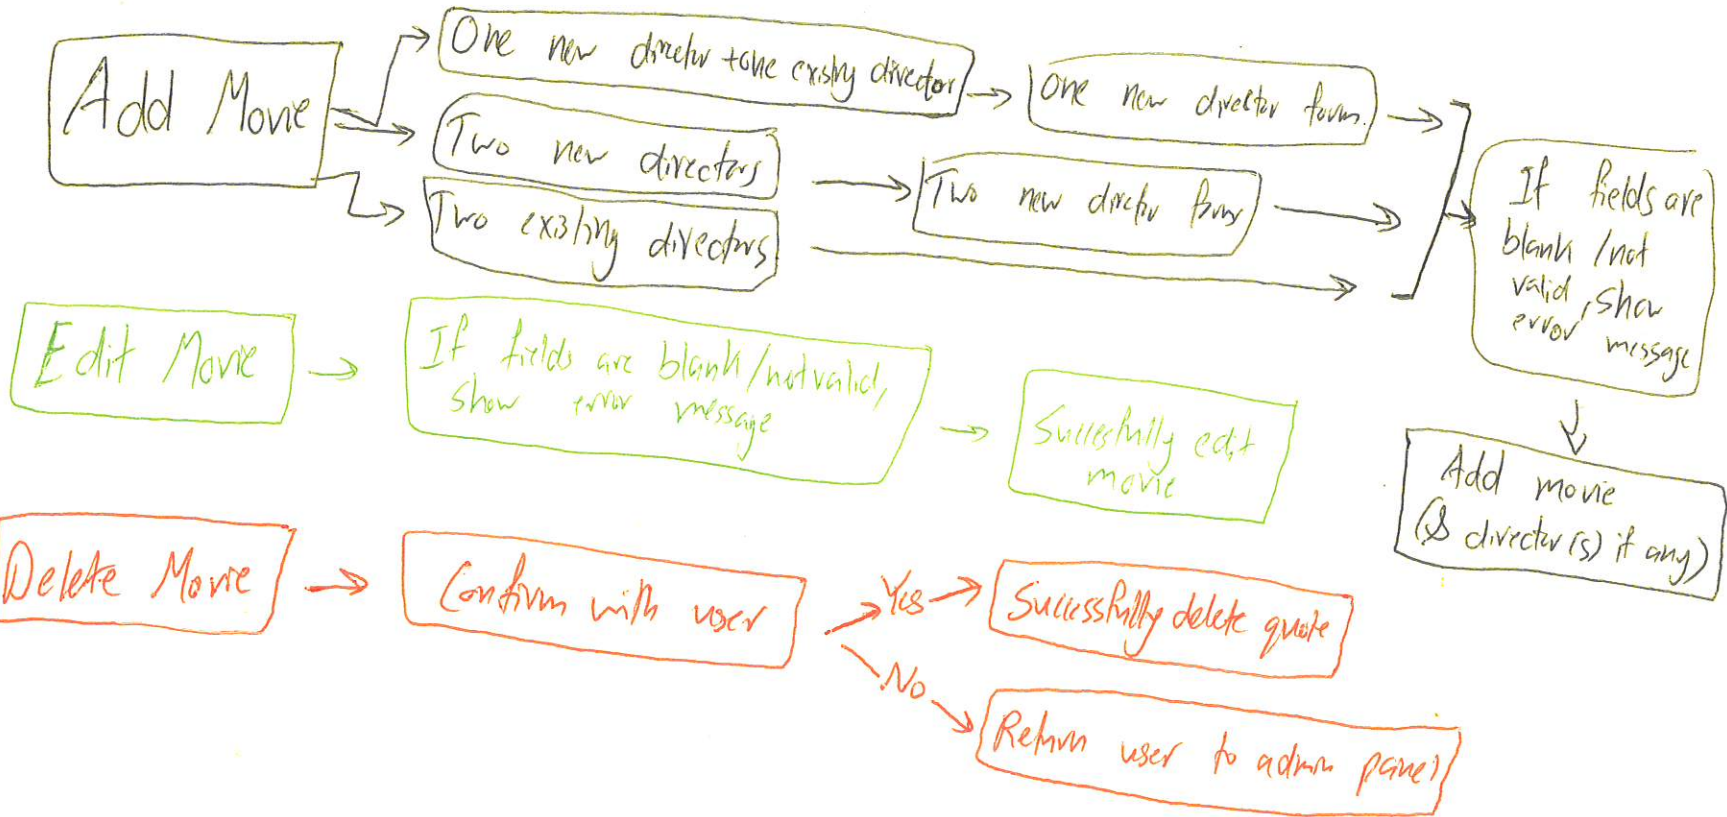 Add Movie
One new director + one existing director
One new director form.
Two new directors
Two new director forms
Two existing directors
If fields are
blank / not
valid, show
error message
Add movie
(& director(s) if any)
Edit Movie
If fields are blank/not valid,
show error message
Succesfully edit
movie
Delete Movie
Confirm with user
Yes
Successfully delete quote
No
Return user to admin panel